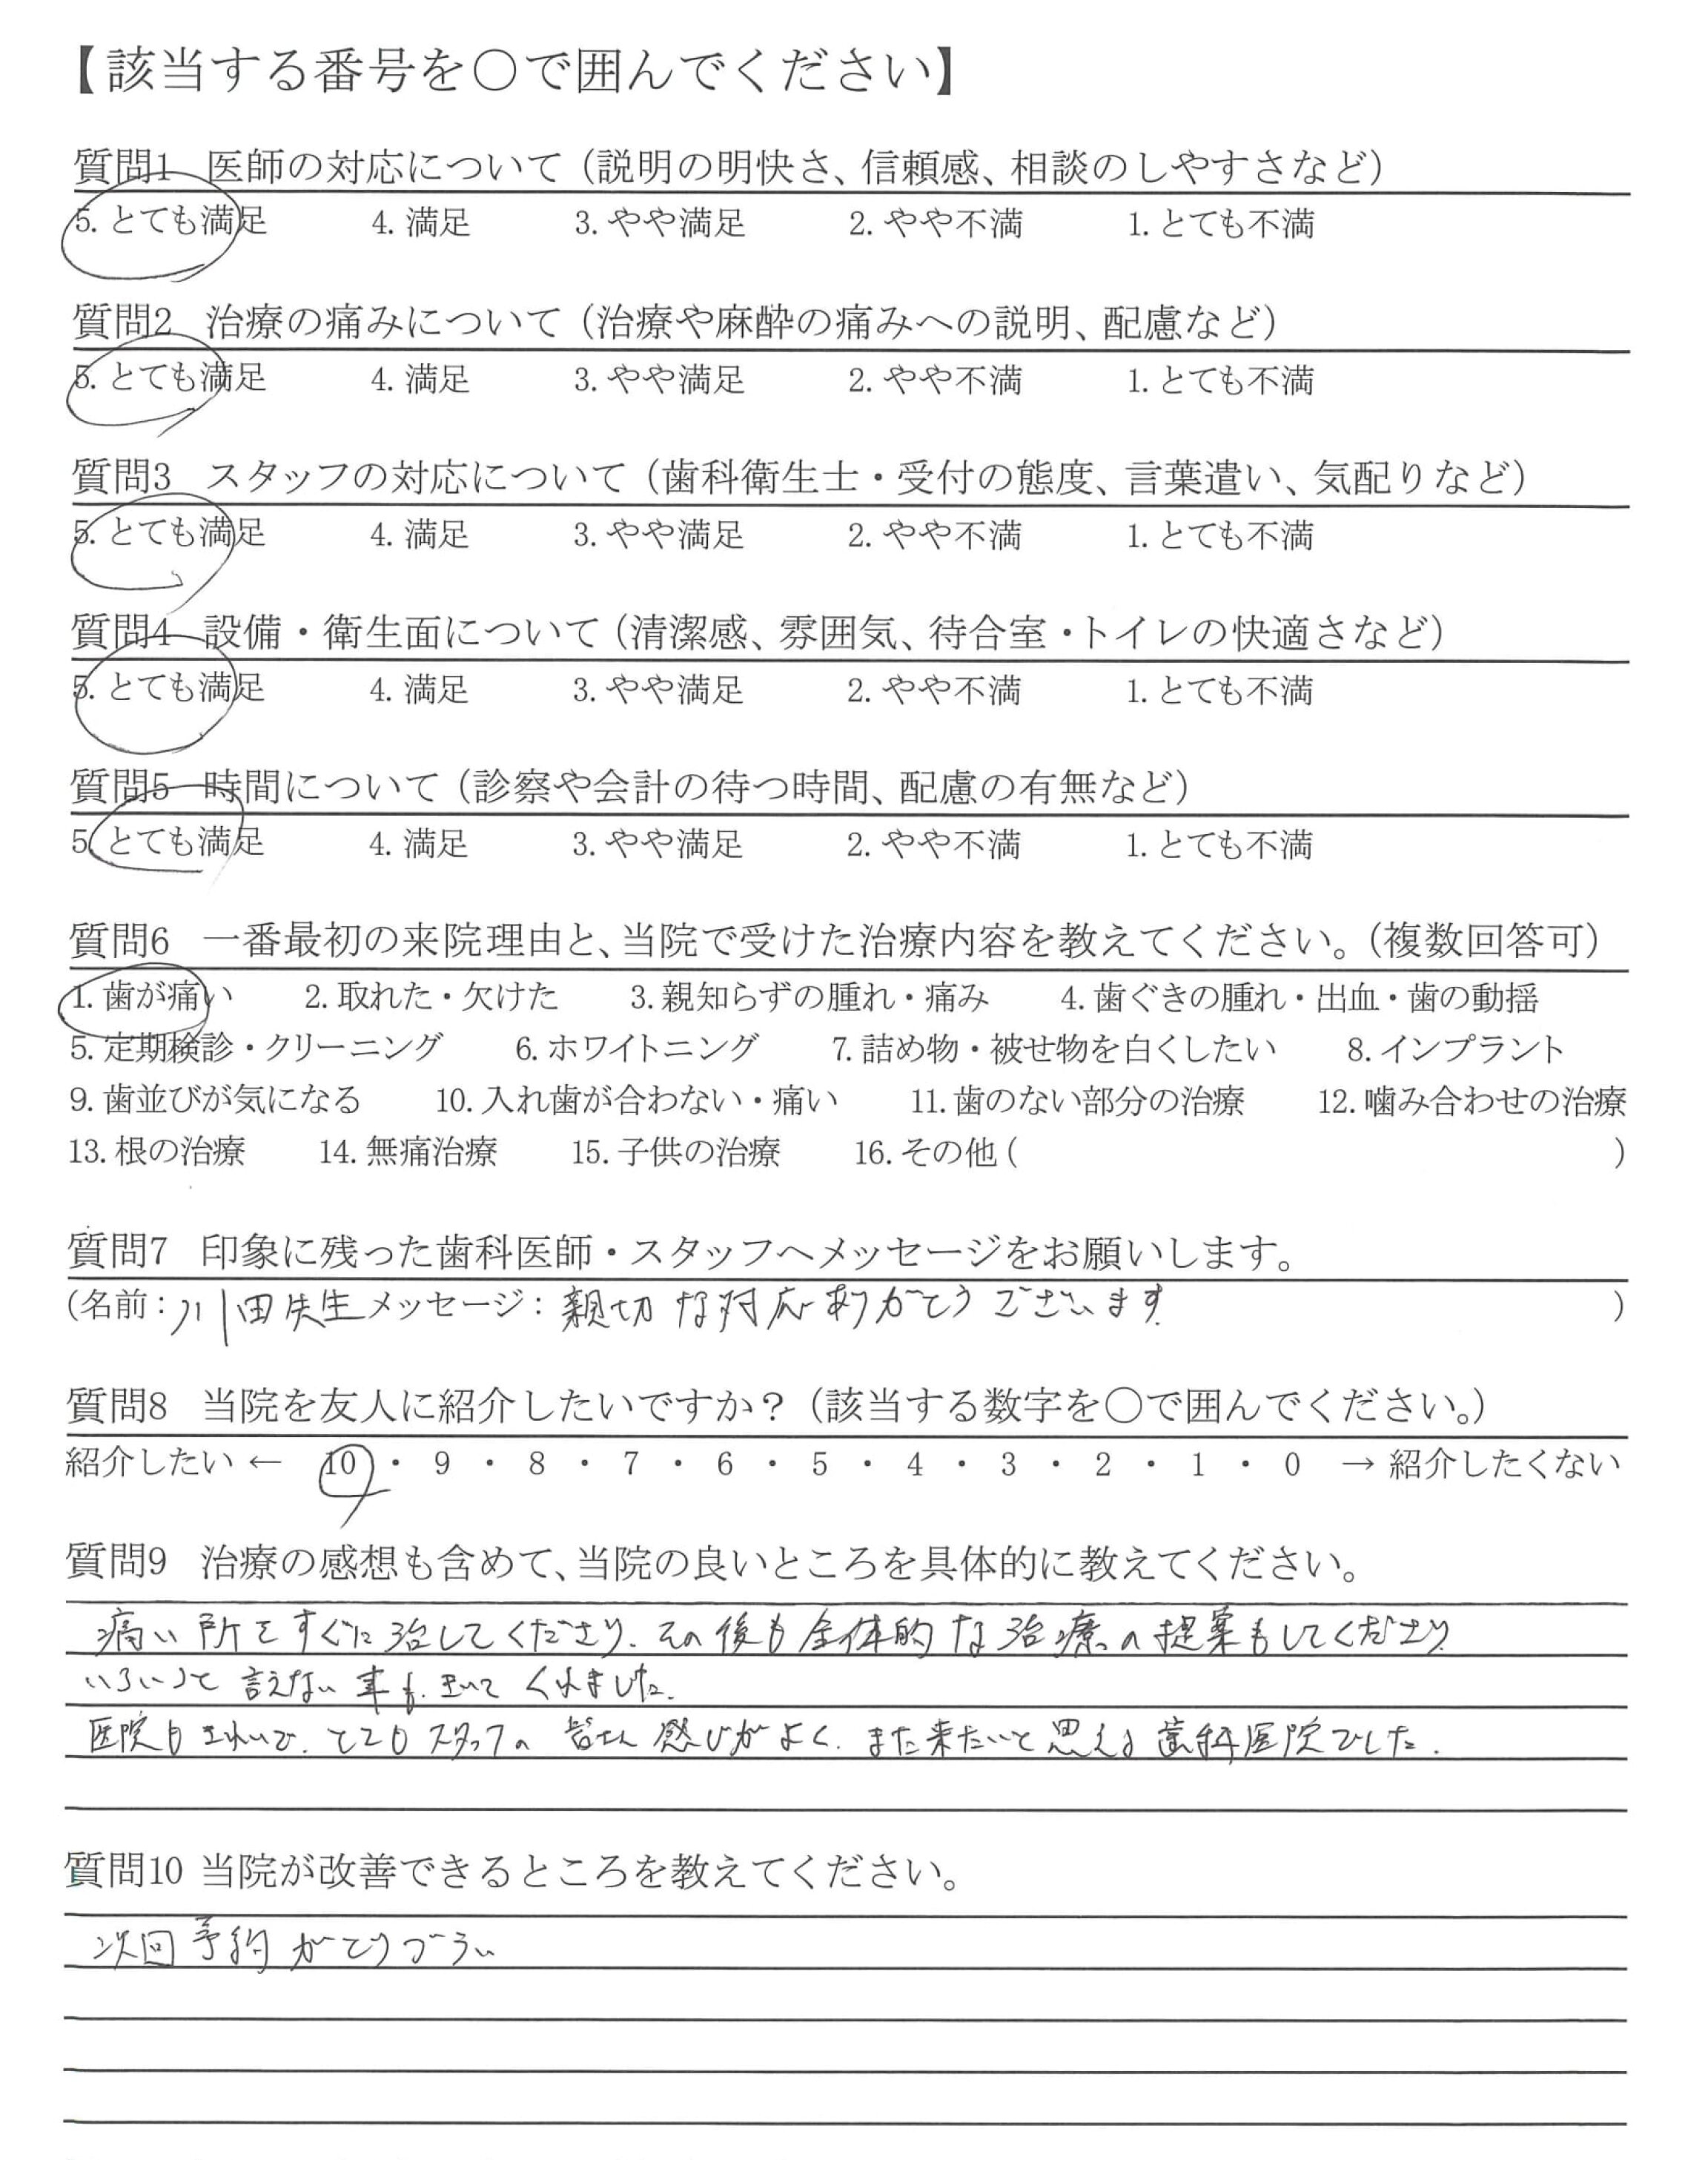 【該当する番号を○で囲んでください】
質問1 医師の対応について（説明の明快さ、信頼感、相談のしやすさなど）
5. とても満足 4. 満足 3. やや満足 2. やや不満 1. とても不満
質問2 治療の痛みについて（治療や麻酔の痛みへの説明、配慮など）
5. とても満足 4. 満足 3. やや満足 2. やや不満 1. とても不満
質問3 スタッフの対応について（歯科衛生士・受付の態度、言葉遣い、気配りなど）
5. とても満足 4. 満足 3. やや満足 2. やや不満 1. とても不満
質問4 設備・衛生面について（清潔感、雰囲気、待合室・トイレの快適さなど）
5. とても満足 4. 満足 3. やや満足 2. やや不満 1. とても不満
質問5 時間について（診察や会計の待つ時間、配慮の有無など）
5. とても満足 4. 満足 3. やや満足 2. やや不満 1. とても不満
質問6 一番最初の来院理由と、当院で受けた治療内容を教えてください。（複数回答可）
1. 歯が痛い 2. 取れた・欠けた 3. 親知らずの腫れ・痛み 4. 歯ぐきの腫れ・出血・歯の動揺
5. 定期検診・クリーニング 6. ホワイトニング 7. 詰め物・被せ物を白くしたい 8. インプラント
9. 歯並びが気になる 10. 入れ歯が合わない・痛い 11. 歯のない部分の治療 12. 噛み合わせの治療
13. 根の治療 14. 無痛治療 15. 子供の治療 16. その他 ( )
質問7 印象に残った歯科医師・スタッフへメッセージをお願いします。
（名前：川田先生 メッセージ：親切な対応ありがとうございます ）
質問8 当院を友人に紹介したいですか？（該当する数字を○で囲んでください。）
紹介したい ← 10 ・ 9 ・ 8 ・ 7 ・ 6 ・ 5 ・ 4 ・ 3 ・ 2 ・ 1 ・ 0 → 紹介したくない
質問9 治療の感想も含めて、当院の良いところを具体的に教えてください。
痛い所をすぐに治してくださり、その後も全体的な治療の提案もしてくださり
いろいろと言えない事も、きいてくれました。
医院もきれいで、とてもスタッフの皆さん感じがよく、また来たいと思える歯科医院でした。
質問10 当院が改善できるところを教えてください。
次回予約がとりづらい